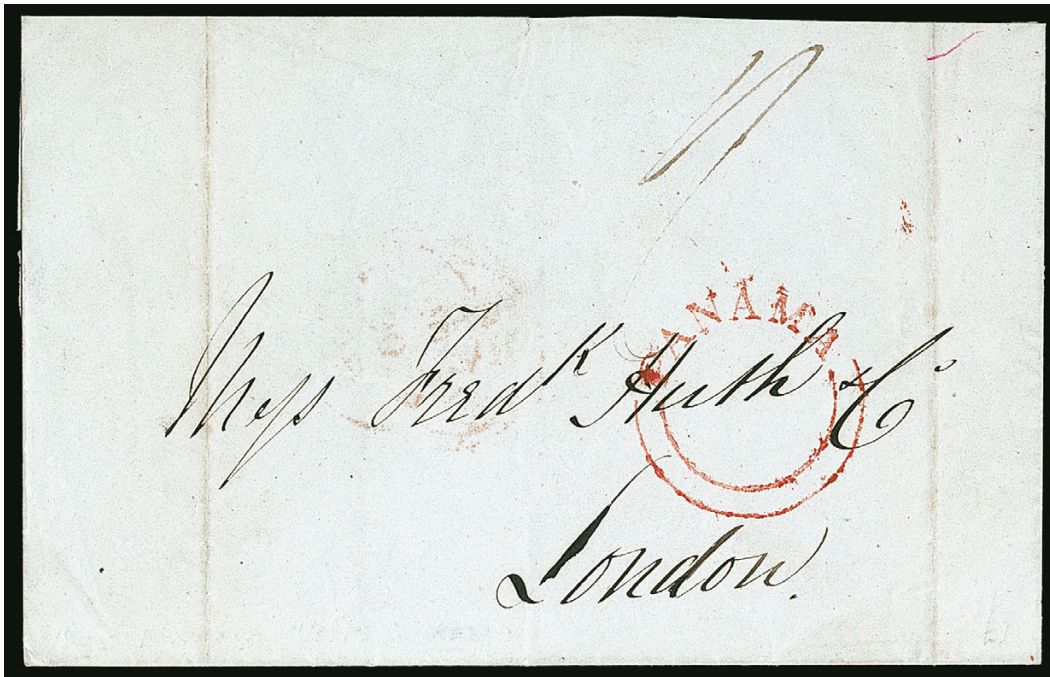 PANAMA
Mess Fredk Huth & Co
London.